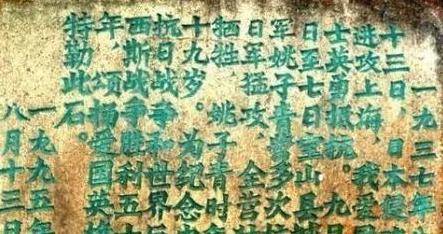 一九三七
十三日，日本侵
进攻上海，我爱
士英勇抵抗。九月
日至七日宝山县城
军姚子青营多次
日军猛攻，全营
牺牲，姚子青时年
十九岁。为纪念
抗日战争和世界
西斯战争胜利五十
年，颂扬爱国英
特勒此石。
一九九五年
八月十三日